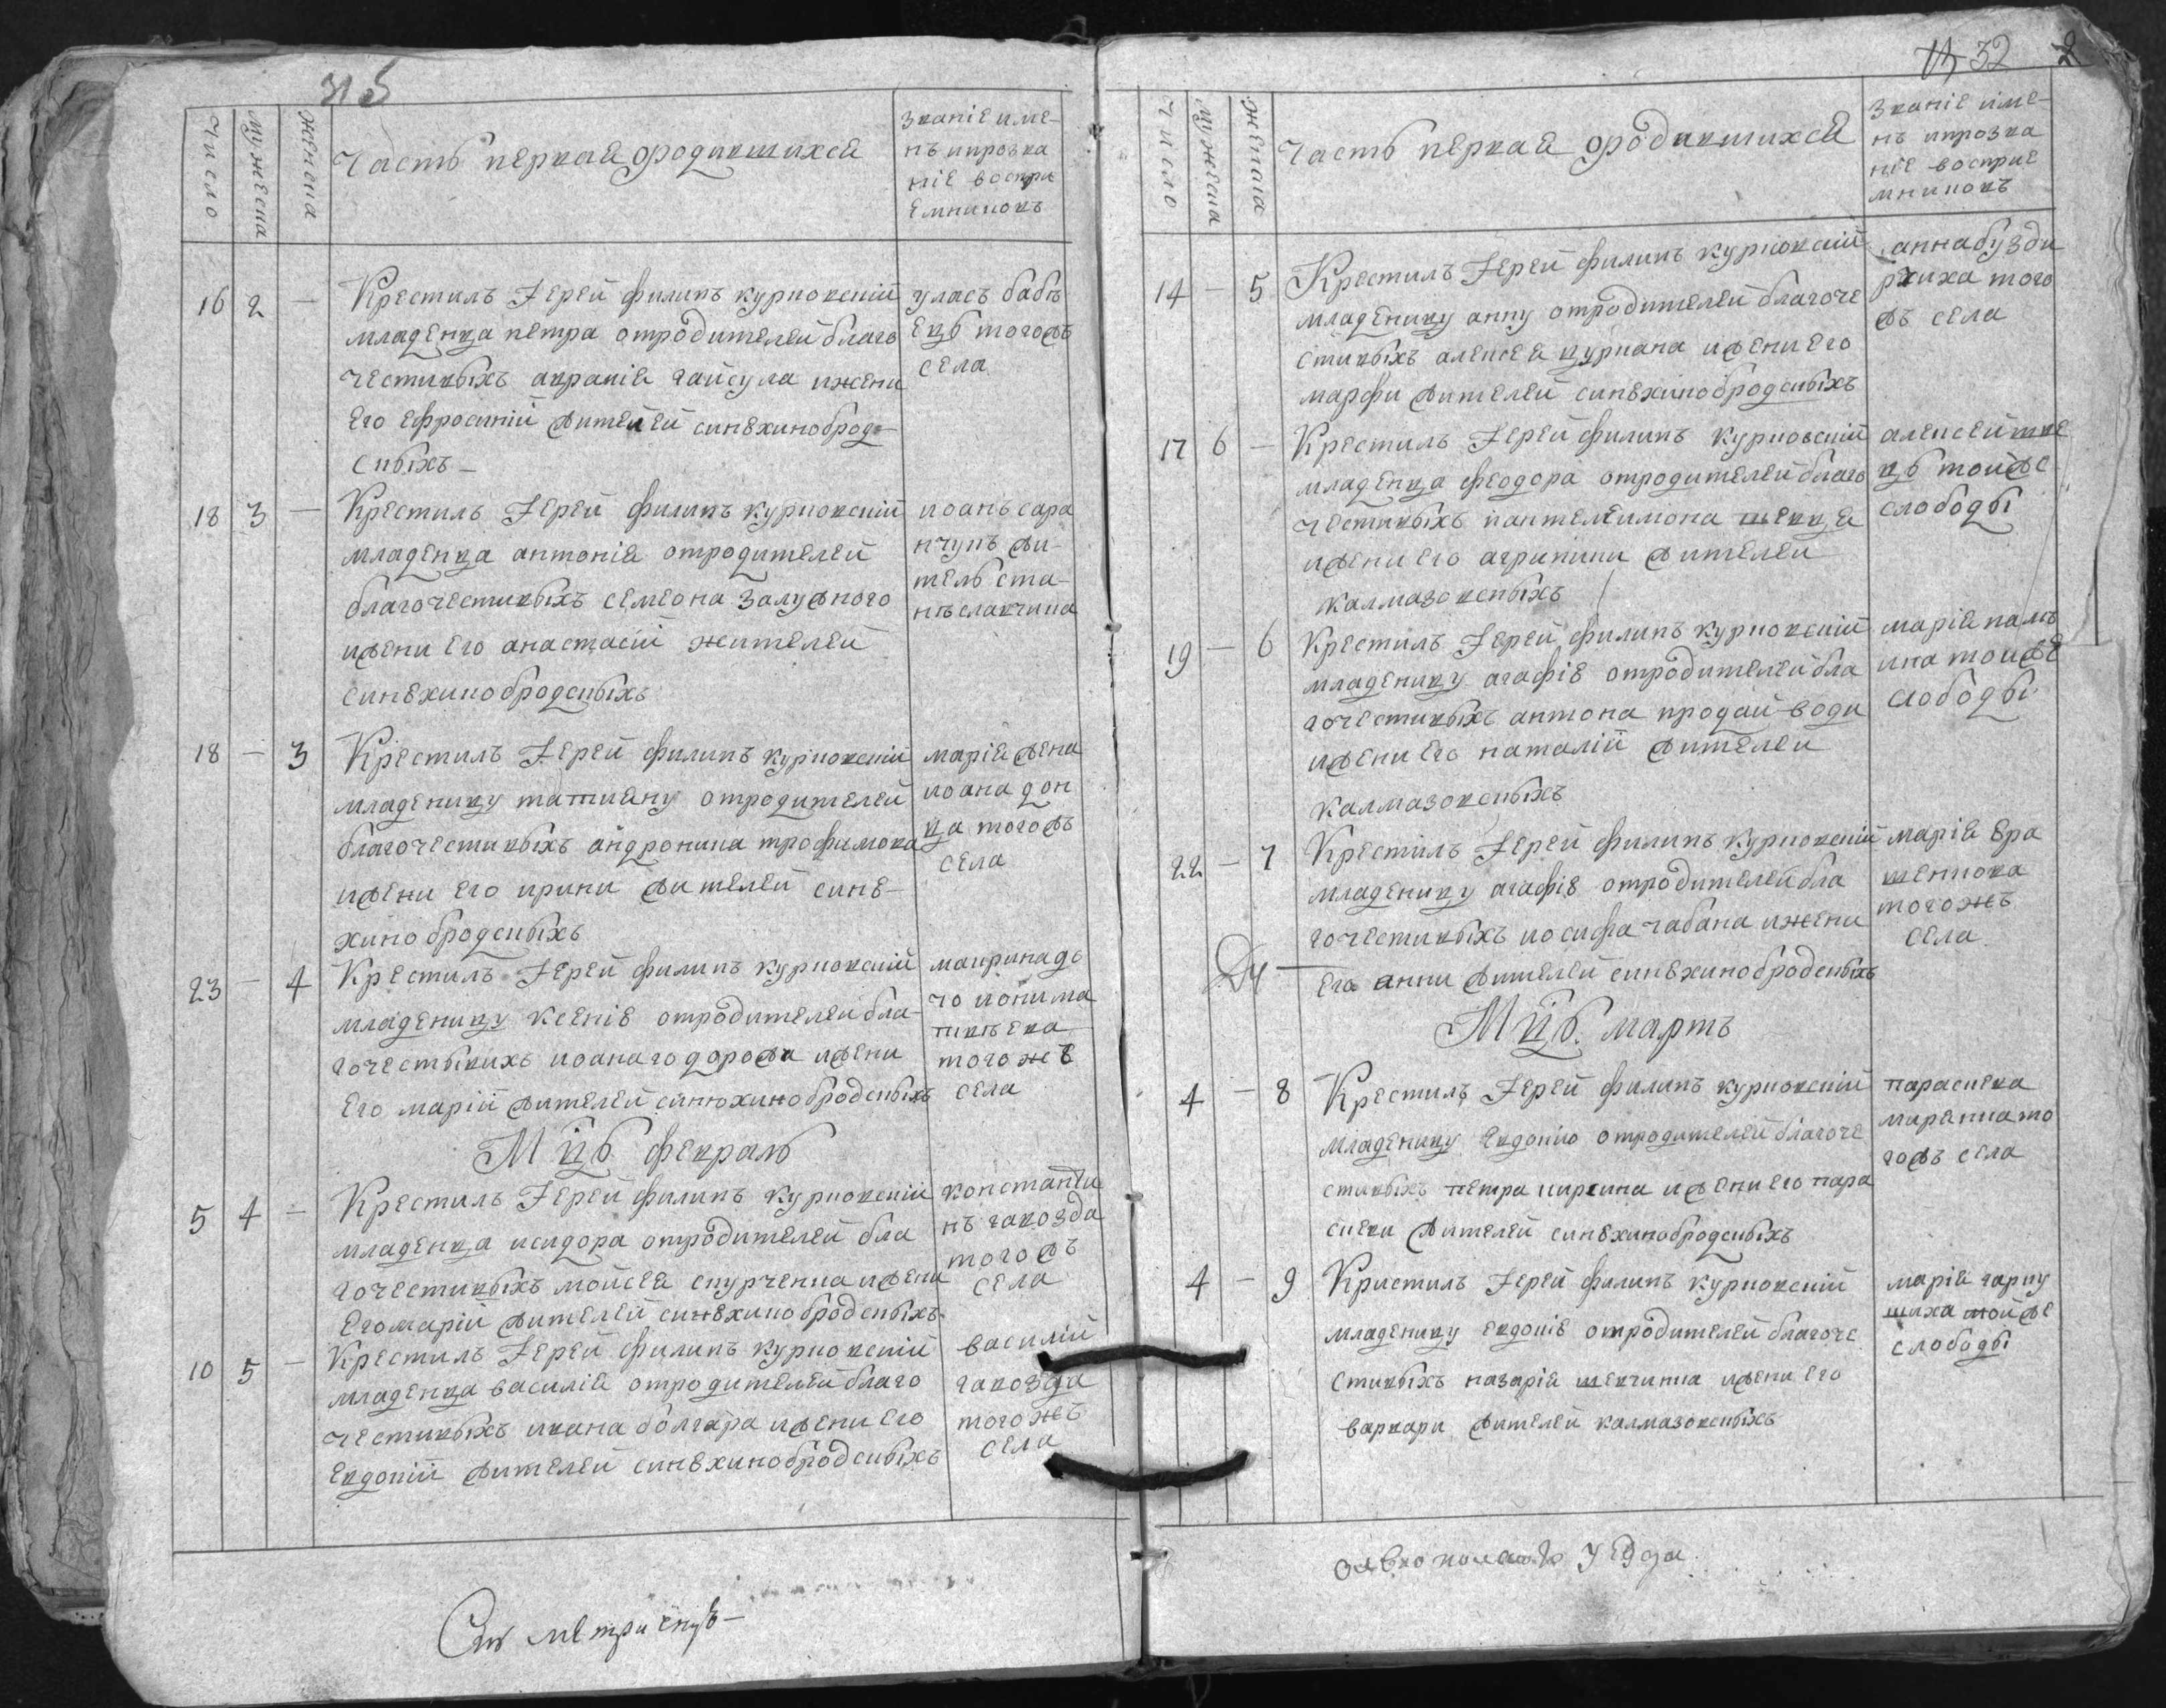 315
число
мужеска
женска
Часть первая о родившихся
Званіе име-
нъ ипрозва
ніе воспри
емниковъ
16 2 —
Крестилъ Іерей филипъ курповскій
младенца петра отродителей благо
честивыхъ авраміа гайсула ижени
Его Ефросиній жителей синюхиноброд-
скихъ —
уласъ бабѣ
Ецъ тогожъ
села
18 3 —
Крестилъ Іерей филипъ курповскій
младенца антоніа отродителей
благочестивыхъ семеона залужного
ижени Его анастасій жителей
синюхинобродскихъ
иоанъ сара
нчукъ жи-
тель ста-
18 — 3
Крестилъ Іерей филипъ курповскій
младеницу татиану отродителей
благочестивыхъ андроника трофимова
ижени Его ирини жителей синю-
хино бродскихъ
маріа жена
иоана дон
ца тогожъ
села
23 — 4
Крестилъ Іерей филипъ курповскій
младеницу ксенію отродителей бла-
гочестивихъ иоана годорожа ижени
Его марій жителей синюхинобродскихъ
тогоже
села
Мцъ февраль
5 4 —
Крестилъ Іерей филипъ курповскій
младенца исидора отродителей бла
гочестивыхъ мойсеа скурченка ижени
Его марій жителей синюхинобродскихъ
константи
нъ гавозда
тогожъ
села
10 5 —
Крестилъ Іерей филипъ курповскій
младенца василіа отродителей благо
честивыхъ ивана болгара ижени Его
Евдокій жителей синюхинобродскихъ
василій
гавозда
тогожъ
села
32
число
мужеска
женска
Часть первая о родившихся
Званіе име-
нъ ипрозва
ніе воспріе
мниковъ
14 — 5
Крестилъ Іерей филипъ курповскій
младеницу анну отродителей благоче
стивыхъ алексеа цуркана ижени Его
марфи жителей синюхинобродскихъ
анна бузди
рхиха того
жъ села
17 6 —
Крестилъ Іерей филипъ курповскій
младенца феодора отродителей благо
честивыхъ пантелеимона шевца
ижени Его агрипини жителей
калмазовскихъ
алексей шве
цъ тойже
слободы
19 — 6
Крестилъ Іерей филипъ курповскій
младеницу агафію отродителей бла
гочестивыхъ антона продай-води
ижени Его наталій жителей
калмазовскихъ
маріа
тойже
слободы
22 — 7
Крестилъ Іерей филипъ курповскій
младеницу агафію отродителей бла
гочестивыхъ иосифа чабана ижени
Его анни жителей синюхинобродскихъ
маріа Ера
шенкова
тогожъ
села
Мцъ мартъ
4 — 8
Крестилъ Іерей филипъ курповскій
младеницу Евдокию отродителей благоче
стивыхъ петра киркина ижени Его пара
скеви жителей синюхинобродскихъ
параскева
то
гожъ села
4 — 9
Кристилъ Іерей филипъ курповскій
младеницу Евдокію отродителей благоче
стивыхъ назаріа шевчинка ижени Его
варвари жителей калмазовскихъ
маріа гарпу
шиха тойже
слободы
уезда